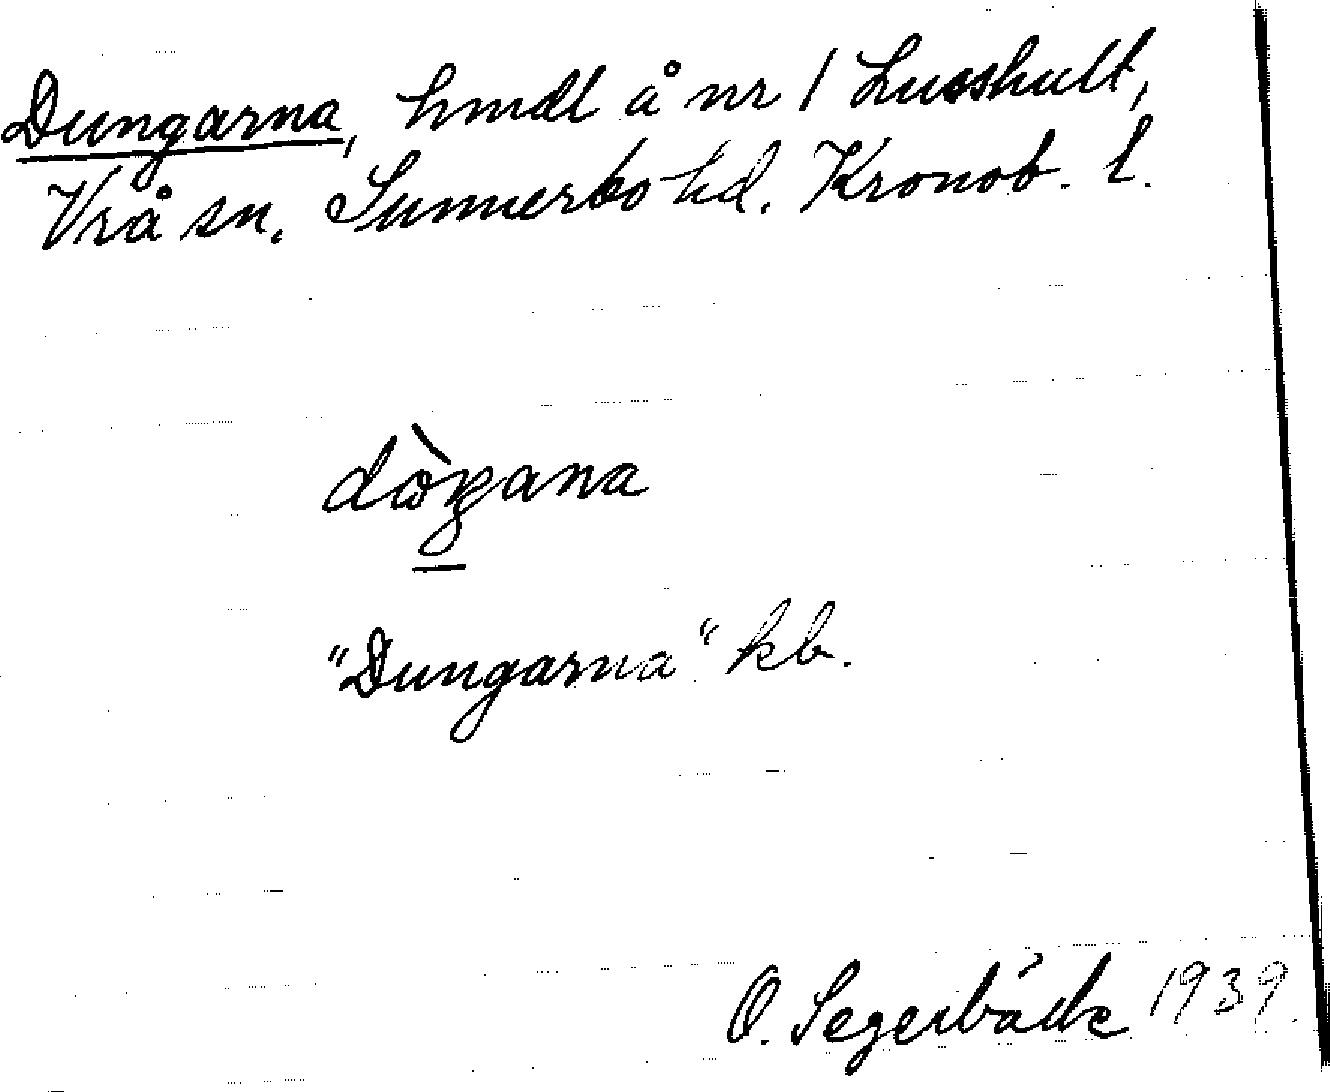 Dungarna, hmdl å nr 1 Lusshult,
Vrå sn. Sunnerbo hd. Kronob. l.
dòŋana
"Dungarna" kb.
O. Segerbäck 1939